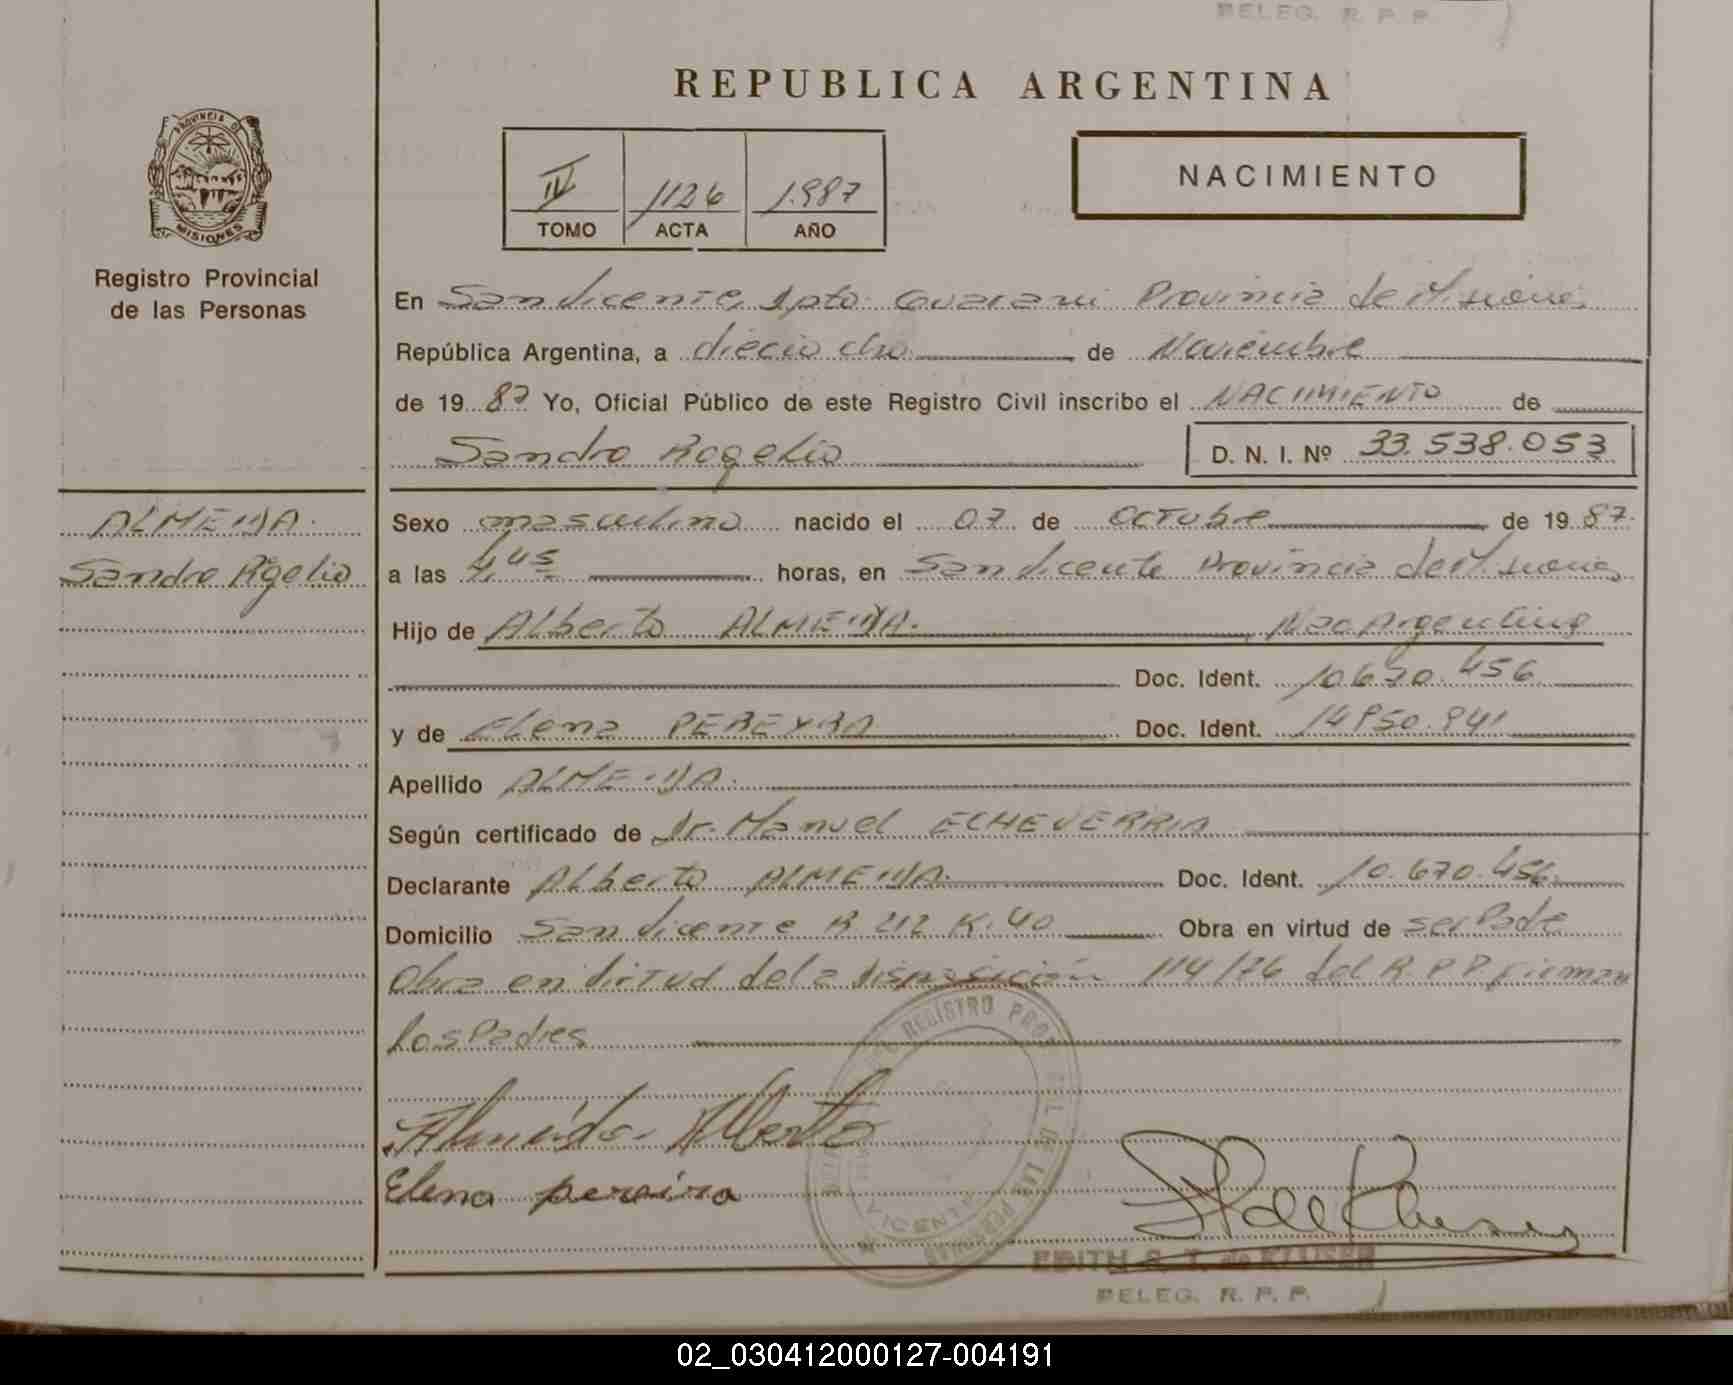 DELEG. R. P. P.
REPUBLICA ARGENTINA
PROVINCIA DE
MISIONES
Registro Provincial
de las Personas
IV 1126 1.987
TOMO ACTA AÑO
NACIMIENTO
En San Vicente, Dpto. Guarani Provincia de Misiones
República Argentina, a dieciocho de Noviembre
de 1987 Yo, Oficial Público de este Registro Civil inscribo el NACIMIENTO de
Sandro Rogelio D. N. I. Nº 33.538.053
ALMEIDA.
Sandro Rogelio
Sexo masculino nacido el 07 de Octubre de 1987.
a las 4,45 horas, en San Vicente Provincia de Misiones
Hijo de Alberto ALMEIDA. Nac Argentina
Doc. Ident. 10.670.456
y de Elena PEREYRA Doc. Ident. 14.950.941
Apellido ALMEIDA.
Según certificado de Dr. Manuel ECHEVERRIA
Declarante Alberto ALMEIDA. Doc. Ident. 10.670.456
Domicilio San Vicente R 212 K. 40 Obra en virtud de ser Padre
Obra en virtud de la disposición 114/76 del R.P.P. firman
los Padres
Almeida Alberto
Elena pereira
REGISTRO DE LAS PERSONAS
EDITH S. T. de KLUSEN
DELEG. R. P. P.
02_030412000127-004191